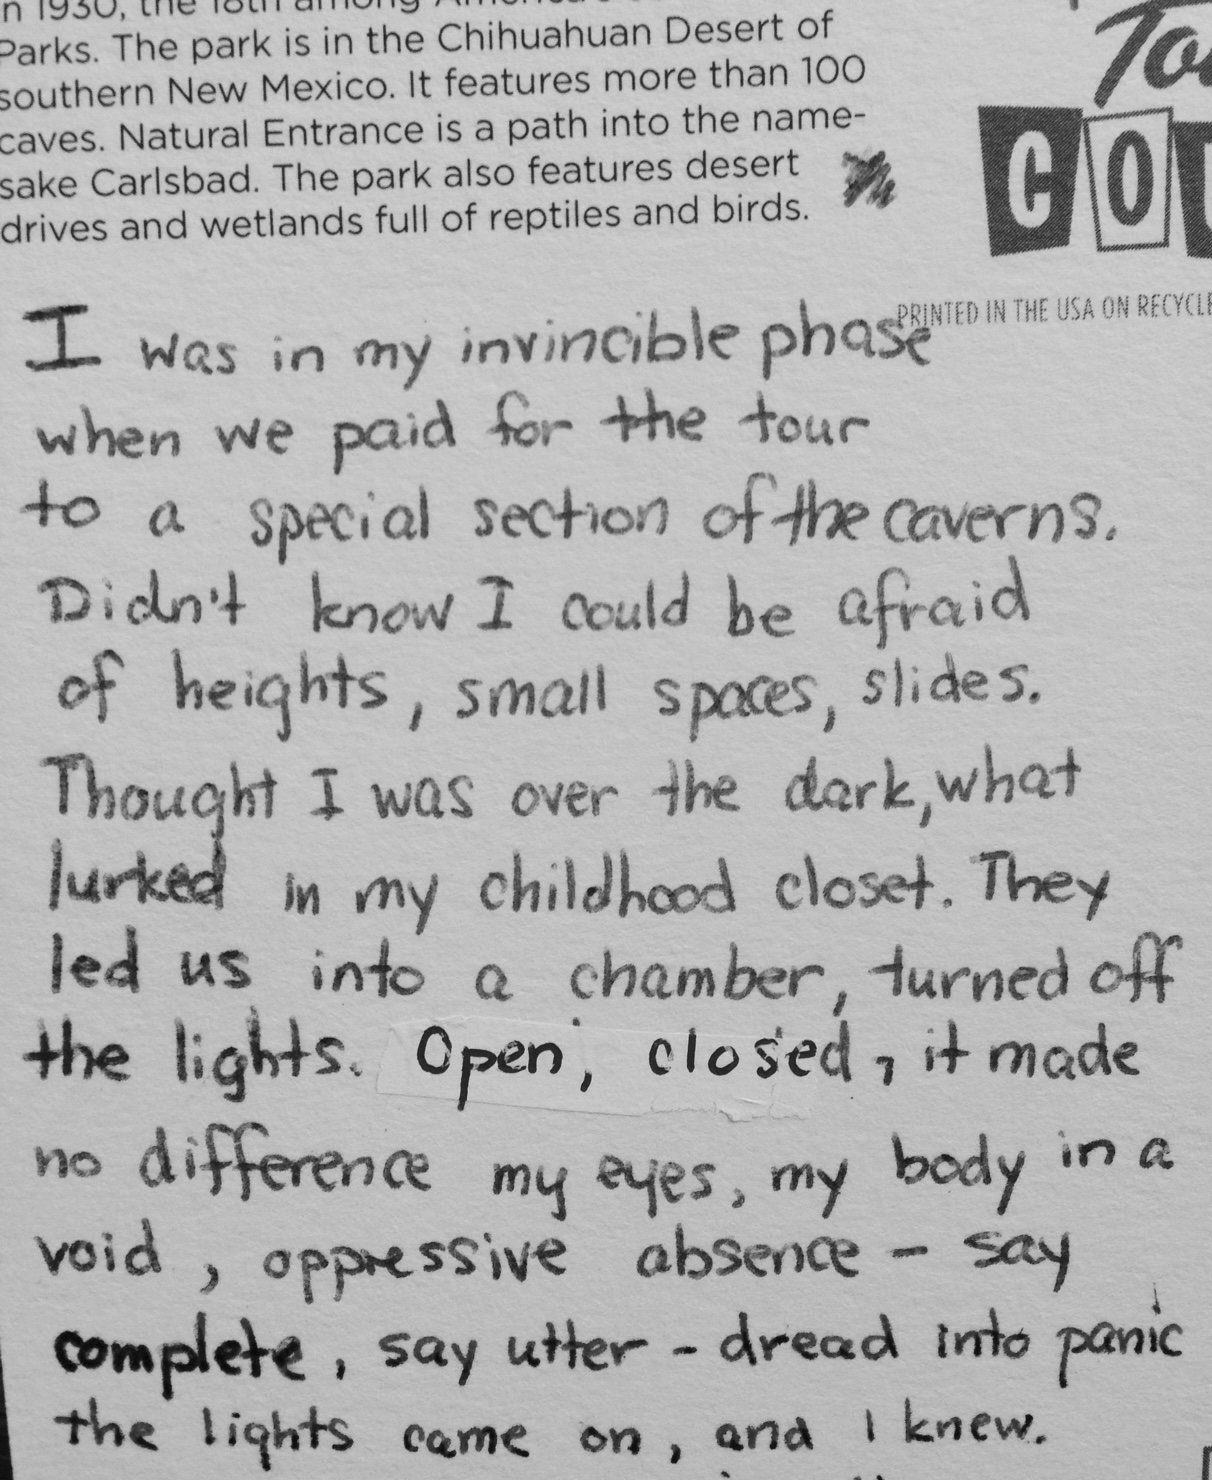 n 1930, the 18th among America's
Parks. The park is in the Chihuahuan Desert of
southern New Mexico. It features more than 100
caves. Natural Entrance is a path into the name-
sake Carlsbad. The park also features desert
drives and wetlands full of reptiles and birds.
To
COU
PRINTED IN THE USA ON RECYCLE
I was in my invincible phase
when we paid for the tour
to a special section of the caverns.
Didn't know I could be afraid
of heights, small spaces, slides.
Thought I was over the dark, what
lurked in my childhood closet. They
led us into a chamber, turned off
the lights. Open, closed, it made
no difference my eyes, my body in a
void, oppressive absence - say
complete, say utter - dread into panic
the lights came on, and I knew.